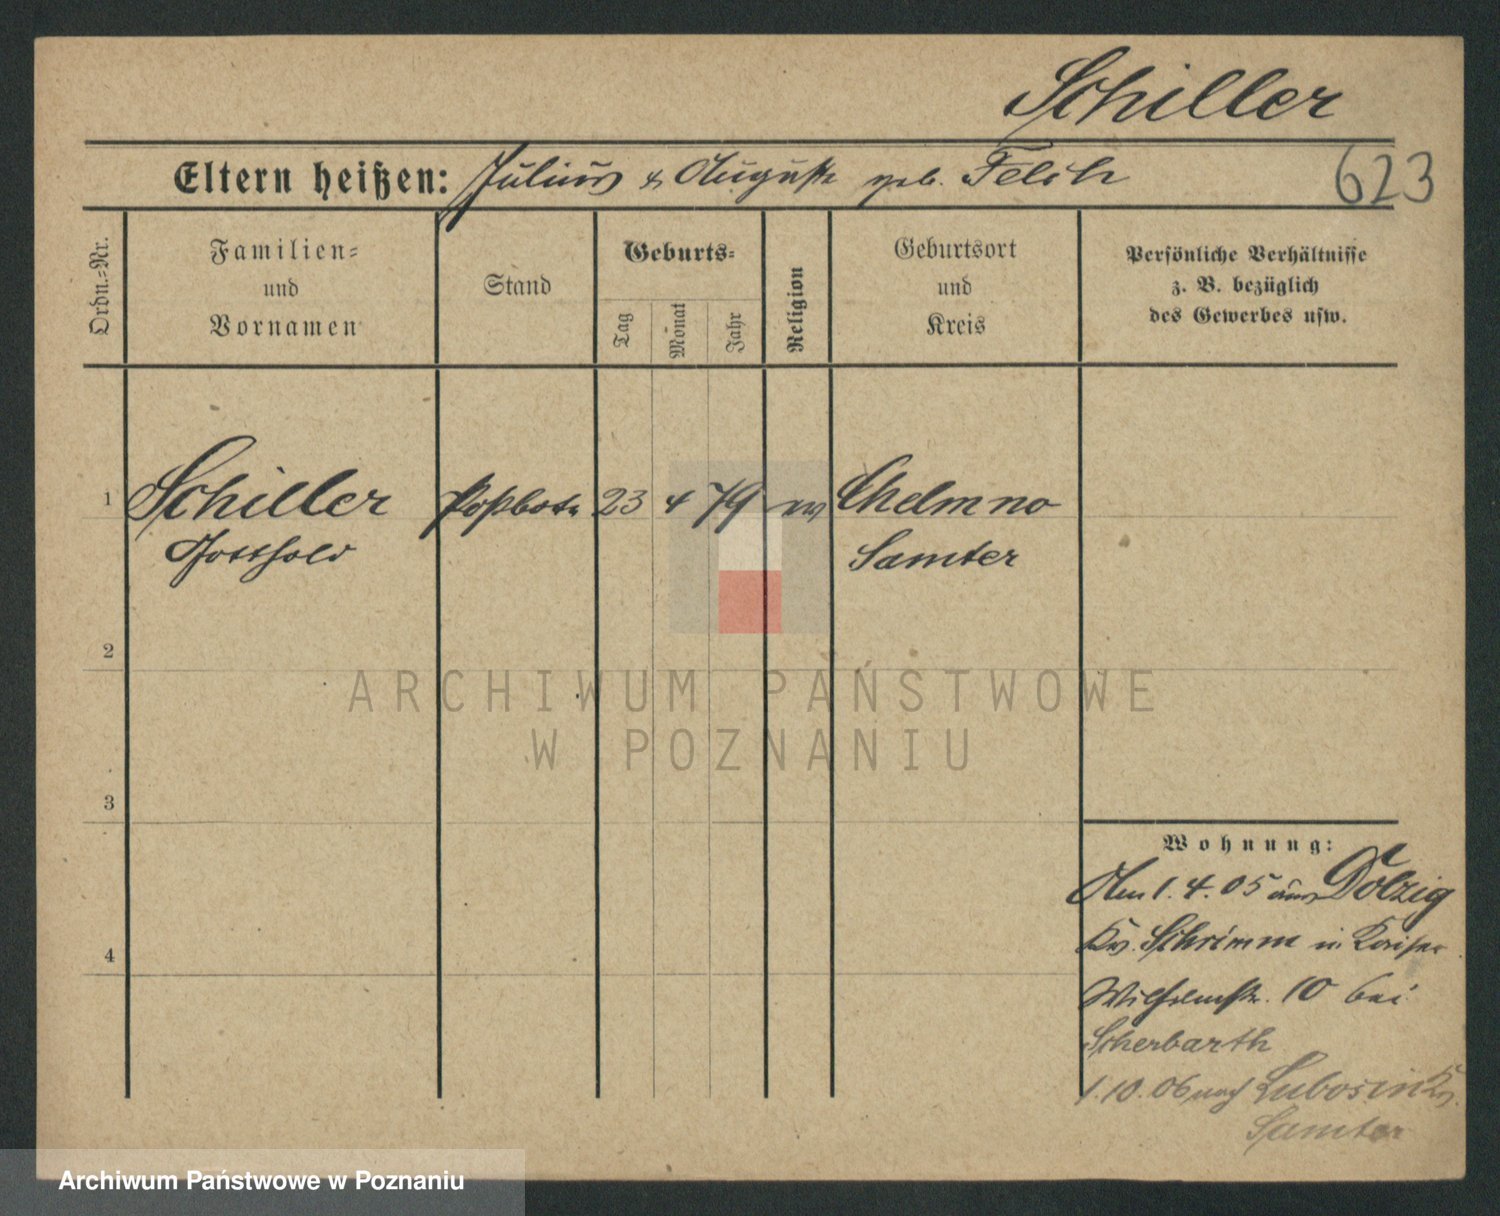 Schiller
Eltern heißen: Julius & Auguste geb. Felsch
623
Ordn.=Nr.
Familien=
und
Vornamen
Stand
Geburts=
Tag
Monat
Jahr
Religion
Geburtsort
und
Kreis
Persönliche Verhältnisse
z. B. bezüglich
des Gewerbes usw.
1 Schiller Postbote 23 4 79 ev Chelmno
Gotthold Samter
2
3
4
ARCHIWUM PAŃSTWOWE
W POZNANIU
Wohnung:
Am 1.4.05 aus Dolzig
Kr. Schrimm in Kaiser
Wilhelmstr. 10 bei
Scherbarth
1.10.06 nach Lubosin Kr.
Samter
Archiwum Państwowe w Poznaniu